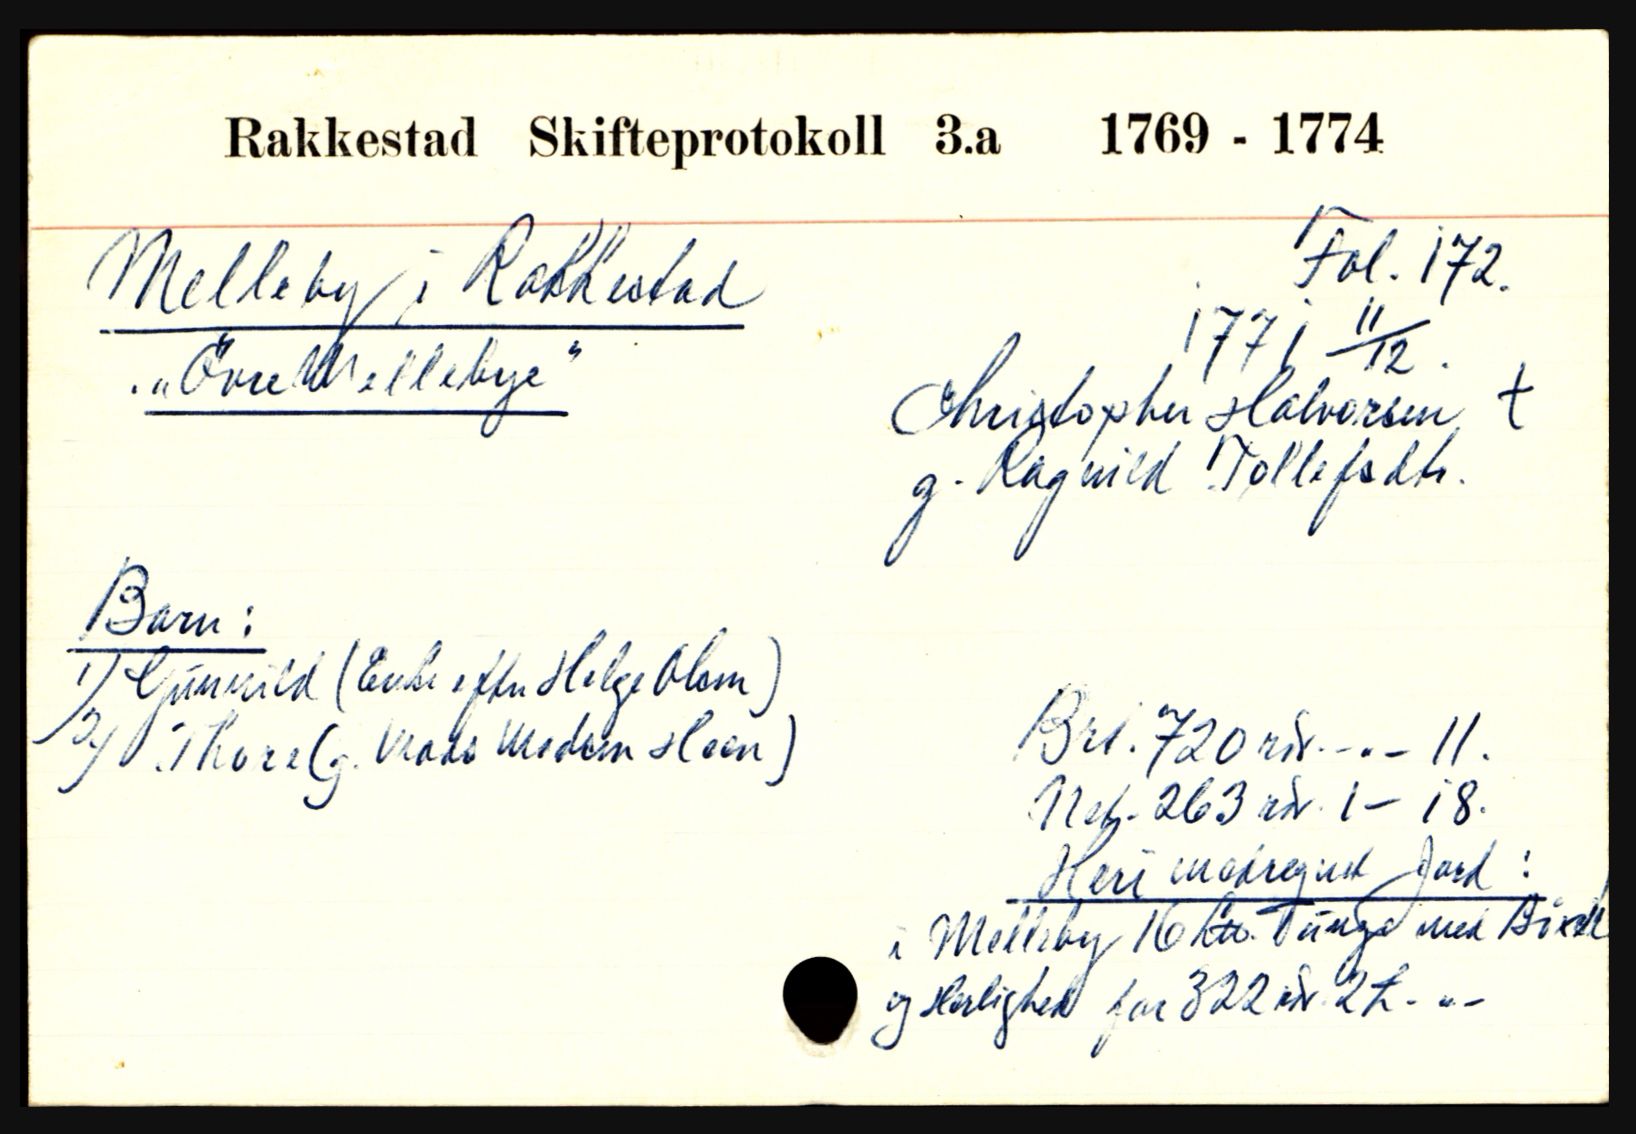 Rakkestad Skifteprotokoll 3.a 1769 - 1774
Melleby i Rakkestad
"Övre Mellebye"
Fol. 172.
1771 11/12.
Christopher Halvorsen †
g. Ragnild Tollefsdtr.
Barn:
1) Gunnild (Enke efter Helge Olsen)
2) Thore (g. Mads Madsen Hoen)
Brt. 720 rdr. -"- 11.
Net. 263 rdr. 1 - 18.
Heri medregnet Jord:
i Melleby 16 Ltr. Tunge med Bixell
og Herlighed for 322 rdr. 2 t. -"-